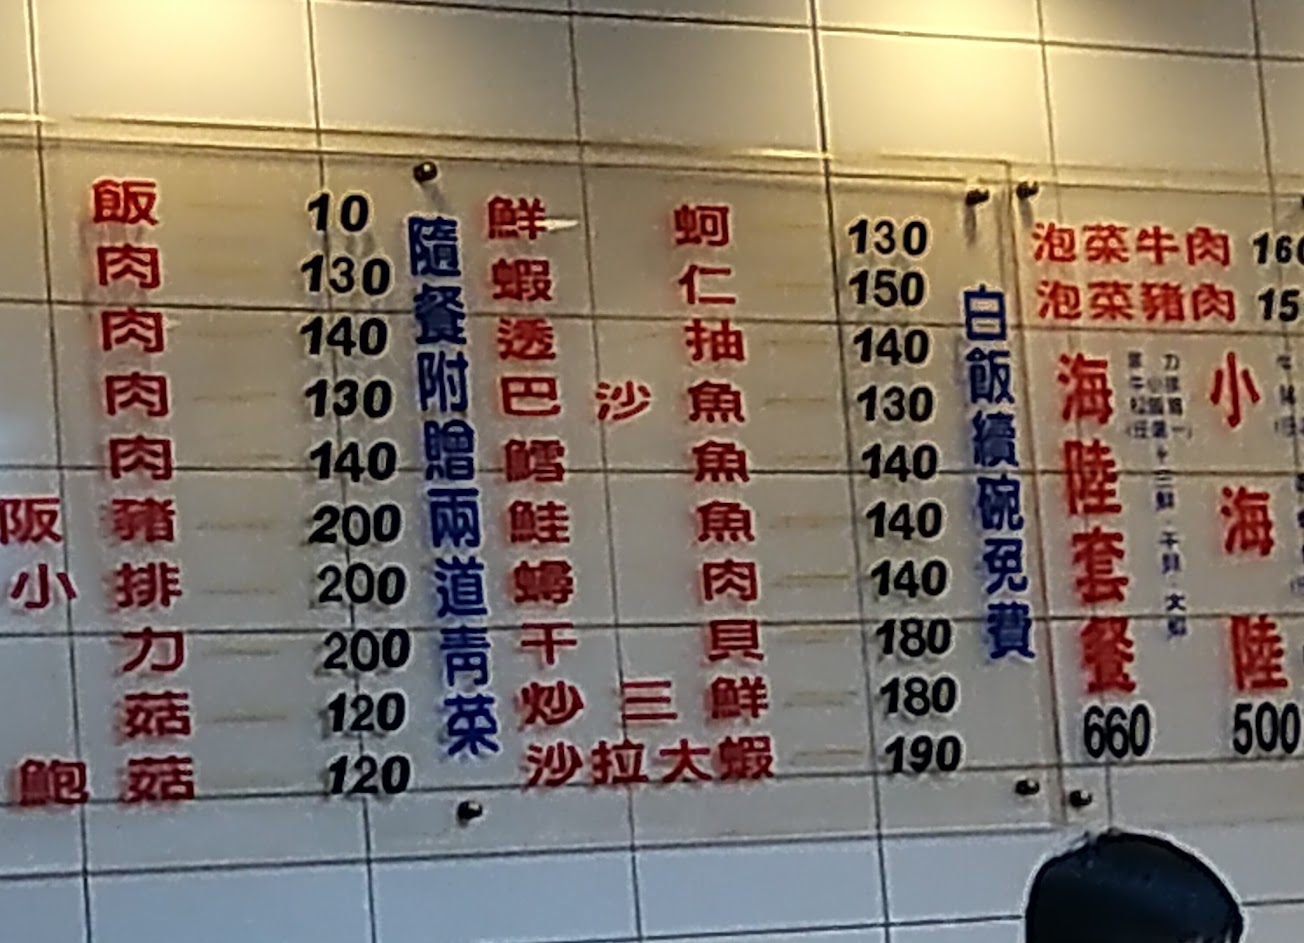 飯 10
肉 130
肉 140
肉 130
肉 140
阪 豬 200
小 排 200
力 200
菇 120
鮑 菇 120
隨餐附贈兩道青菜
鮮 蚵 130
蝦 仁 150
透 抽 140
巴 沙 魚 130
鱈 魚 140
鮭 魚 140
蟳 肉 140
干 貝 180
炒 三 鮮 180
沙拉大蝦 190
白飯續碗免費
泡菜牛肉 160
泡菜豬肉 15
海陸套餐
660
小海陸
500